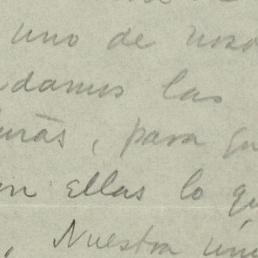 uno de noso
damos las
uras, para qu
en ellas lo qu
, Nuestra úni